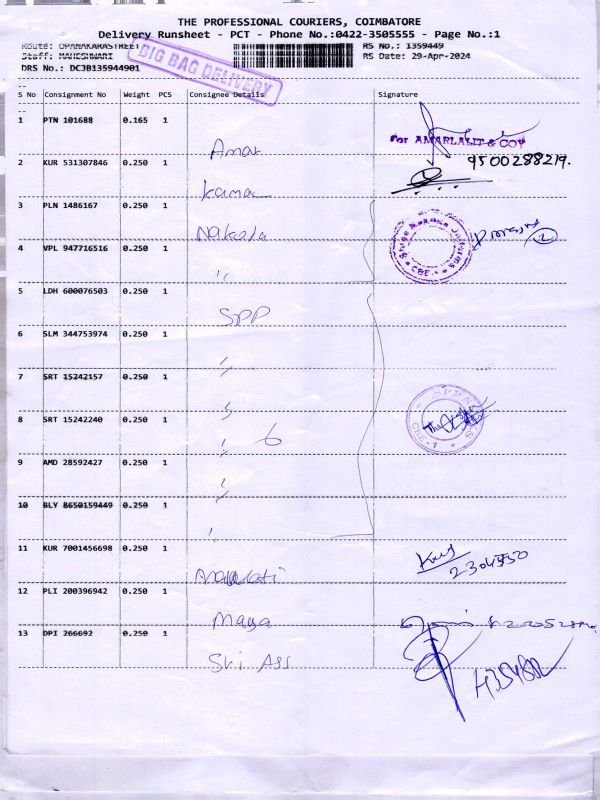 THE PROFESSIONAL COURIERS, COIMBATORE
Delivery Runsheet - PCT - Phone No.:0422-3505555 - Page No.:1
Route: OPANAKARASTREET
RS No.: 1359449
Staff: MAHESHWARI
RS Date: 29-Apr-2024
DRS No.: DCJB135944901
BIG BAG DELIVERY
S No Consignment No Weight PCS Consignee Details Signature
1 PTN 101688 0.165 1 Amar
For AMARLALIT & COY
2 KUR 531307846 0.250 1 Kamac
9500288219.
3 PLN 1486167 0.250 1 Nakoda
4 VPL 947716516 0.250 1 "
CBE-1
5 LDH 600076503 0.250 1 SPP
6 SLM 344753974 0.250 1 "
7 SRT 15242157 0.250 1 "
8 SRT 15242240 0.250 1 " 6
CBE-1
9 AMD 28592427 0.250 1 "
10 BLY 8650159449 0.250 1 "
11 KUR 7001456698 0.250 1
12 PLI 200396942 0.250 1 Maya
13 DPI 266692 0.250 1 Sri Ass